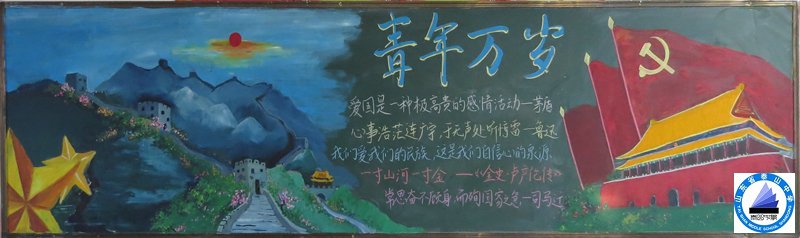 青年万岁
爱国是一种极高贵的感情活动—茅盾
心事浩茫连广宇,于无声处听惊雷—鲁迅
我们爱我们的民族,这是我们自信心的泉源
一寸山河一寸金——
常思奋不顾身,而殉国家急—司马迁
山东省泰山中学